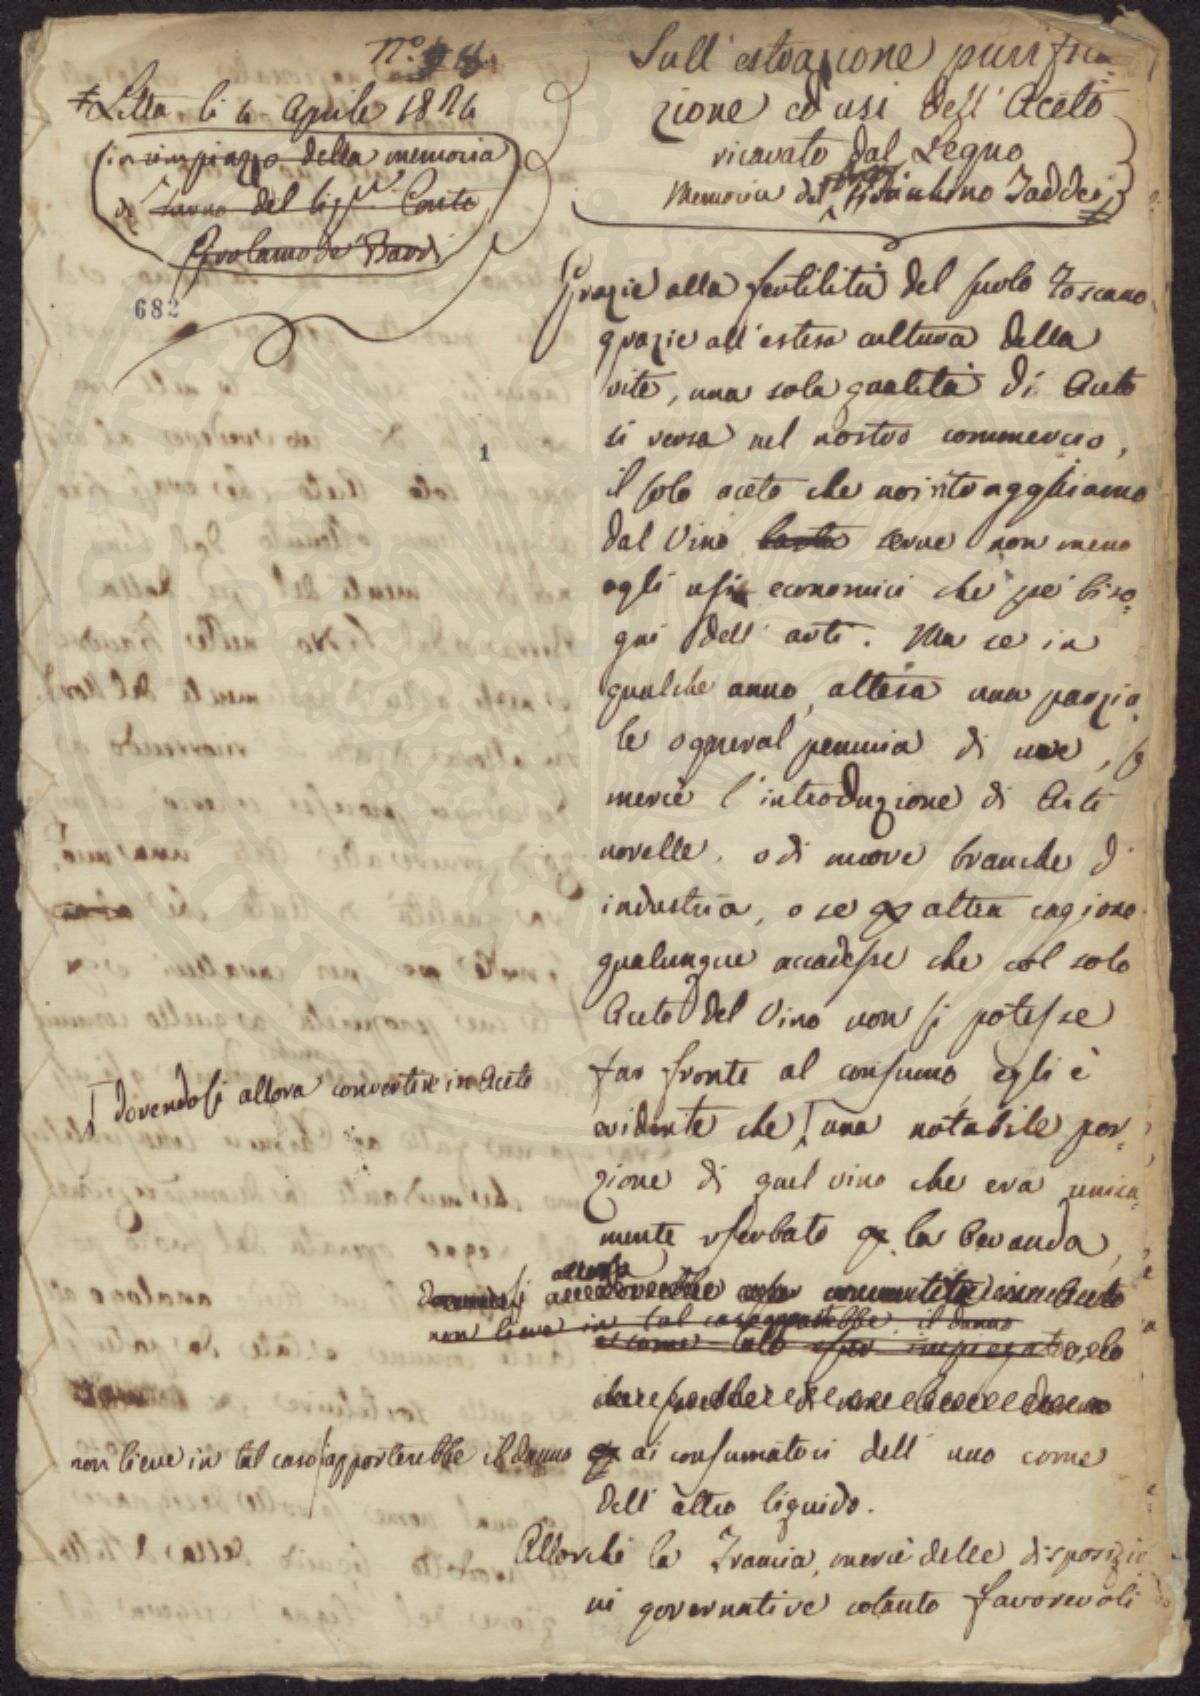 N.º
Letta li 4 Aprile 1824
in rimpiazzo della memoria
di turno del Sig.r Conte
Girolamo de' Bardi
682
1
Sull'estrazione purifica-
zione ed usi dell'Aceto
ricavato dal Legno
Memoria del Gioacchino Taddei
Grazie alla fertilità del suolo Toscano
grazie all'estesa cultura della
vite, una sola qualità di Aceto
si versa nel nostro commercio,
il solo aceto che noi ritragghiamo
dal Vino serve non meno
agli usi economici che pe' biso-
gni dell'arti. Ma se in
qualche anno, attesa una parzia-
le o general penuria di uve, o
mercè l'introduzione di Arti
novelle, o di nuove branche d'
industria, o se altra cagione
qualunque accadesse che col solo
Aceto del Vino non si potesse
far fronte al consumo, egli è
evidente che una notabile por-
zione di quel vino che era unica-
mente serbato per la bevanda,
dovendosi allora convertire in Aceto
allora
non lieve in tal caso apporterebbe il danno
e come tale impiegato
non lieve in tal caso apporterebbe il danno
ai consumatori dell'uno come
dell'altro liquido.
Allorchè la Francia, mercè delle disposizio
ni governative cotanto favorevoli